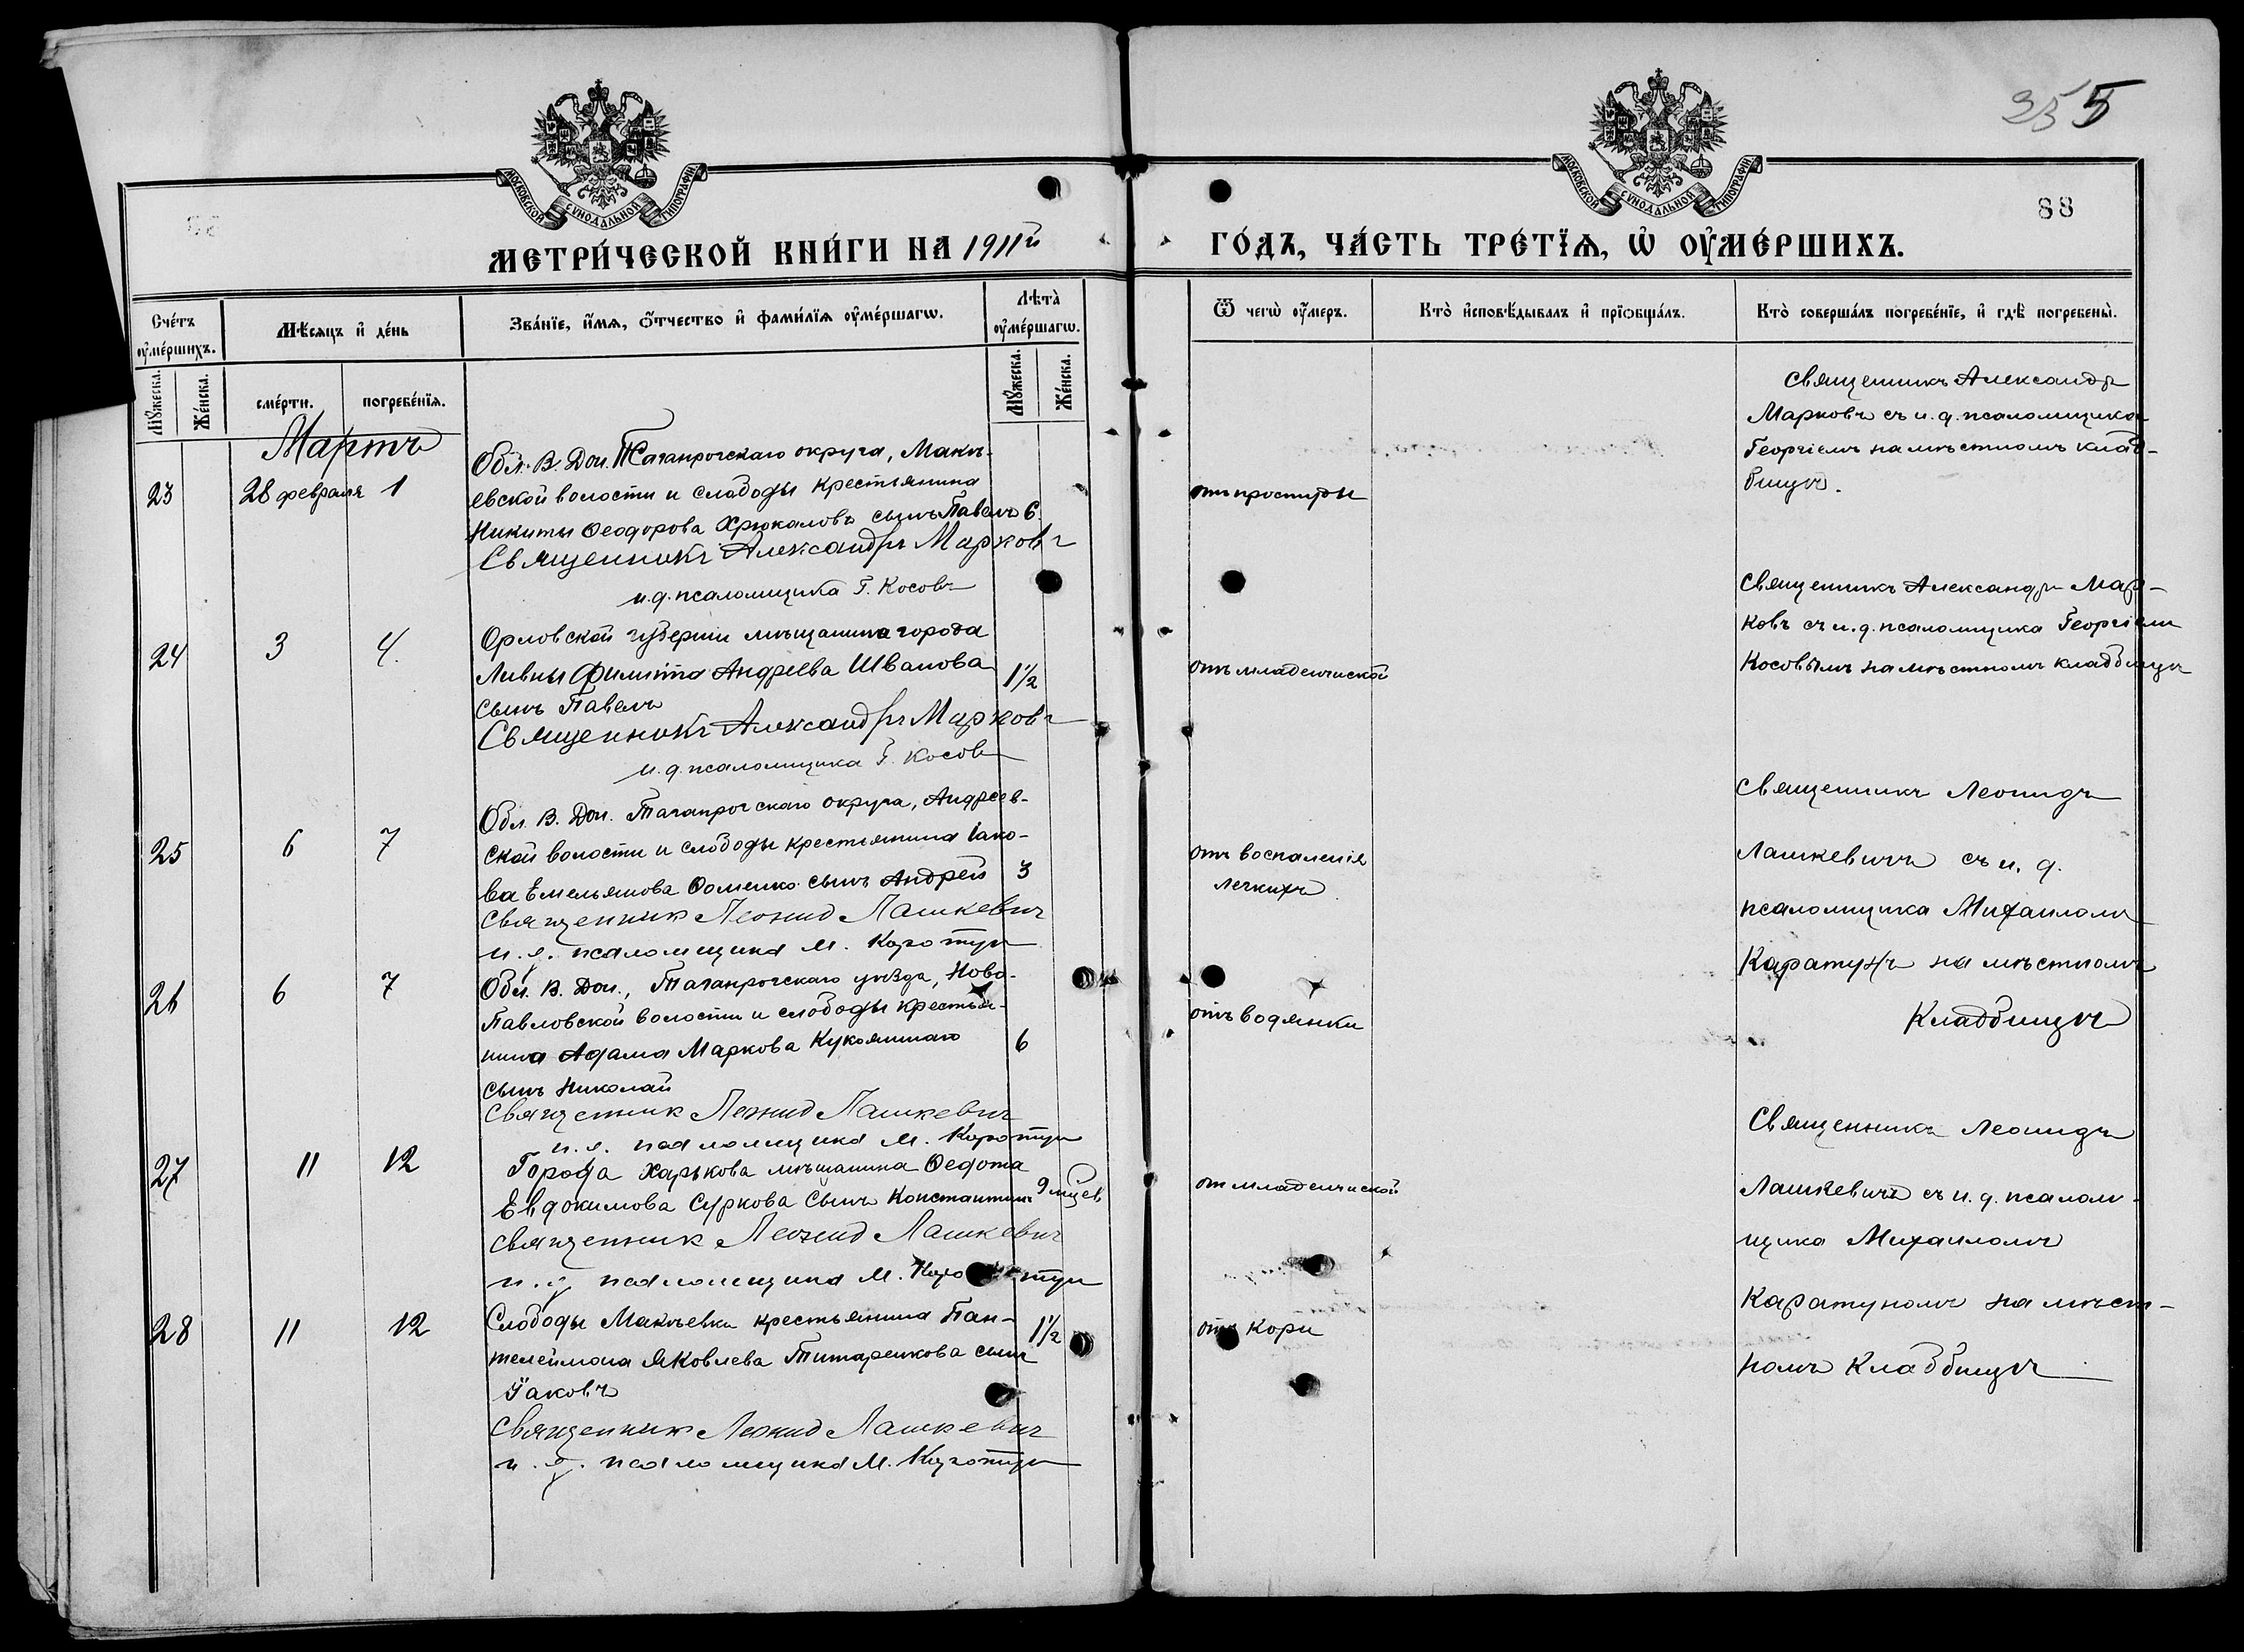 255
88
МОСКОВСКОЙ СѴНОДАЛЬНОЙ ТИПОГРАФІИ
МОСКОВСКОЙ СѴНОДАЛЬНОЙ ТИПОГРАФІИ
МЕТРИ́ЧЕСКОЙ КНИ́ГИ НА 1911й
ГО́ДЪ, ЧА́СТЬ ТРЕ́ТЇѦ, Ѡ҆ ОУ҆МЕ́РШИХЪ.
Сче́тъ оу҆ме́ршихъ.
Мѣ́сѧцъ и҆ де́нь
Зва́нїе, и҆́мѧ, ѻ҆́тчество и҆ фами́лїѧ оу҆ме́ршагѡ.
Лѣта̀ оу҆ме́ршагѡ.
Ѿ чегѡ̀ оу҆́меръ.
Кто̀ и҆сповѣ́дывалъ и҆ прїѻбща́лъ.
Кто̀ соверша́лъ погребе́нїе, и҆ гдѣ̀ погребены̀.
Мꙋ́жеска.
Же́нска.
сме́рти.
погребе́нїѧ.
Мꙋ́жеска.
Же́нска.
Мартъ
23
28 февраля 1
Обл. В. Дон. Таганрогскаго округа, Макѣ-
евской волости и слободы крестьянина
Никиты Ѳеодорова Хрюкаловъ сынъ Павелъ 6
Священникъ Александръ Марковъ
и.д. псаломщика Г. Косовъ
отъ простуды
Священникъ Александръ
Марковъ съ и. д. псаломщика
Георгіемъ на мѣстномъ клад-
бищѣ.
24
3
4.
Орловской губерніи мѣщанина города
Ливны Филиппа Андреева Шванова 1½
сынъ Павелъ
Священникъ Александръ Марковъ
и. д. псаломщика Г. Косовъ
отъ младенческой
Священникъ Александръ Мар-
ковъ съ и. д. псаломщика Георгіемъ
Косовымъ на мѣстномъ кладбищѣ
25
6
7
Обл. В. Дон. Таганрогскаго округа, Андреев-
ской волости и слободы крестьянина Іако-
ва Емельянова Ѳоменко сынъ Андрей 3
Священник Леонид Лашкевич
и. д. псаломщика М. Каротун
отъ воспаленія
легкихъ
Священникъ Леонидъ
Лашкевичъ съ и. д.
псаломщика Михаиломъ
Каратунъ на мѣстномъ
Кладбищѣ
26
6
7
Обл. В. Дон., Таганрогскаго уѣзда, Ново-
Павловской волости и слободы крестья-
нина Адама Маркова 6
сынъ Николай
Священник Леонид Лашкевич
и. д. псаломщика М. Каротун
отъ водянки
27
11
12
Города Харькова мѣщанина Ѳедота
Евдокимова Суркова сынъ Константинъ 9 мцев
Священник Леонид Лашкевич
и. д. псаломщика М. Каротун
от младенческой
Священникъ Леонидъ
Лашкевичъ съ и. д. псалом-
щика Михаиломъ
Каратуномъ на мѣст-
номъ Кладбищѣ
28
11
12
Слободы Макѣевки крестьянина Пан-
телеймона Яковлева Титаренкова сынъ 1½
Іаковъ
Священник Леонид Лашкевич
и. д. псаломщика М. Каротун
отъ Кори